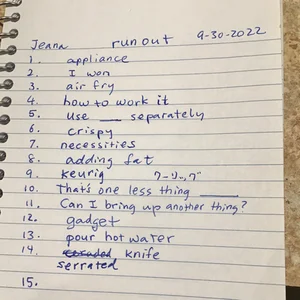 Jeana run out 9-30-2022
1. appliance
2. I won
3. air fry
4. how to work it
5. use ___ separately
6. crispy
7. necessities
8. adding fat
9. keurig
10. That's one less thing ____
11. Can I bring up another thing?
12. gadget
13. pour hot water
14. knife
serrated
15.